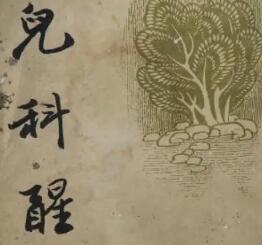 兒科醒